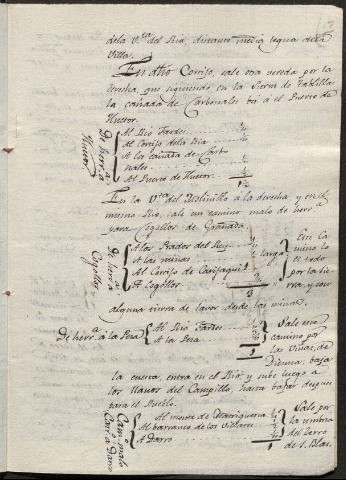 dela V.ta del Rio, distante media legua dela
Villa.
En dho Cortijo, sale otra vereda por la
derecha, que siguiendo en la Sierra de
la cañada de Carbonales bá á el Puerto de
Huetor.
De herr.a á Huetor
Al Rio Fardes
Al Cortijo dela Ria
A la cañada de Carbo
nales
Al Puerto de Huetor
En la V.ta del Molinillo á la derecha y en el
mismo Rio, sale un camino malo de herr.a
para Cogollos de Granada.
De herr.a á Cogollos
A los Prados del Rey
A las minas
larga
Al Cortijo de
A Cogollos
Este Ca
mino lo
es todo
por la Sie
rra, y con
alguna tierra de lavor desde las minas.
De herr.a á la Peza
Al Rio Fardes
A la Peza
Sale este
camino por
las Viñas, de
Diezma, baja
la cuesta, entra en el Rio, y sube luego a
los llanos del Campillo, hasta bajar despues
para el Pueblo.
Cam.o malo Carr.o á Darro
Al monte de
Al barranco de los Villares
A Darro
Sale por
la umbria
del Zerro
de S. Blas.